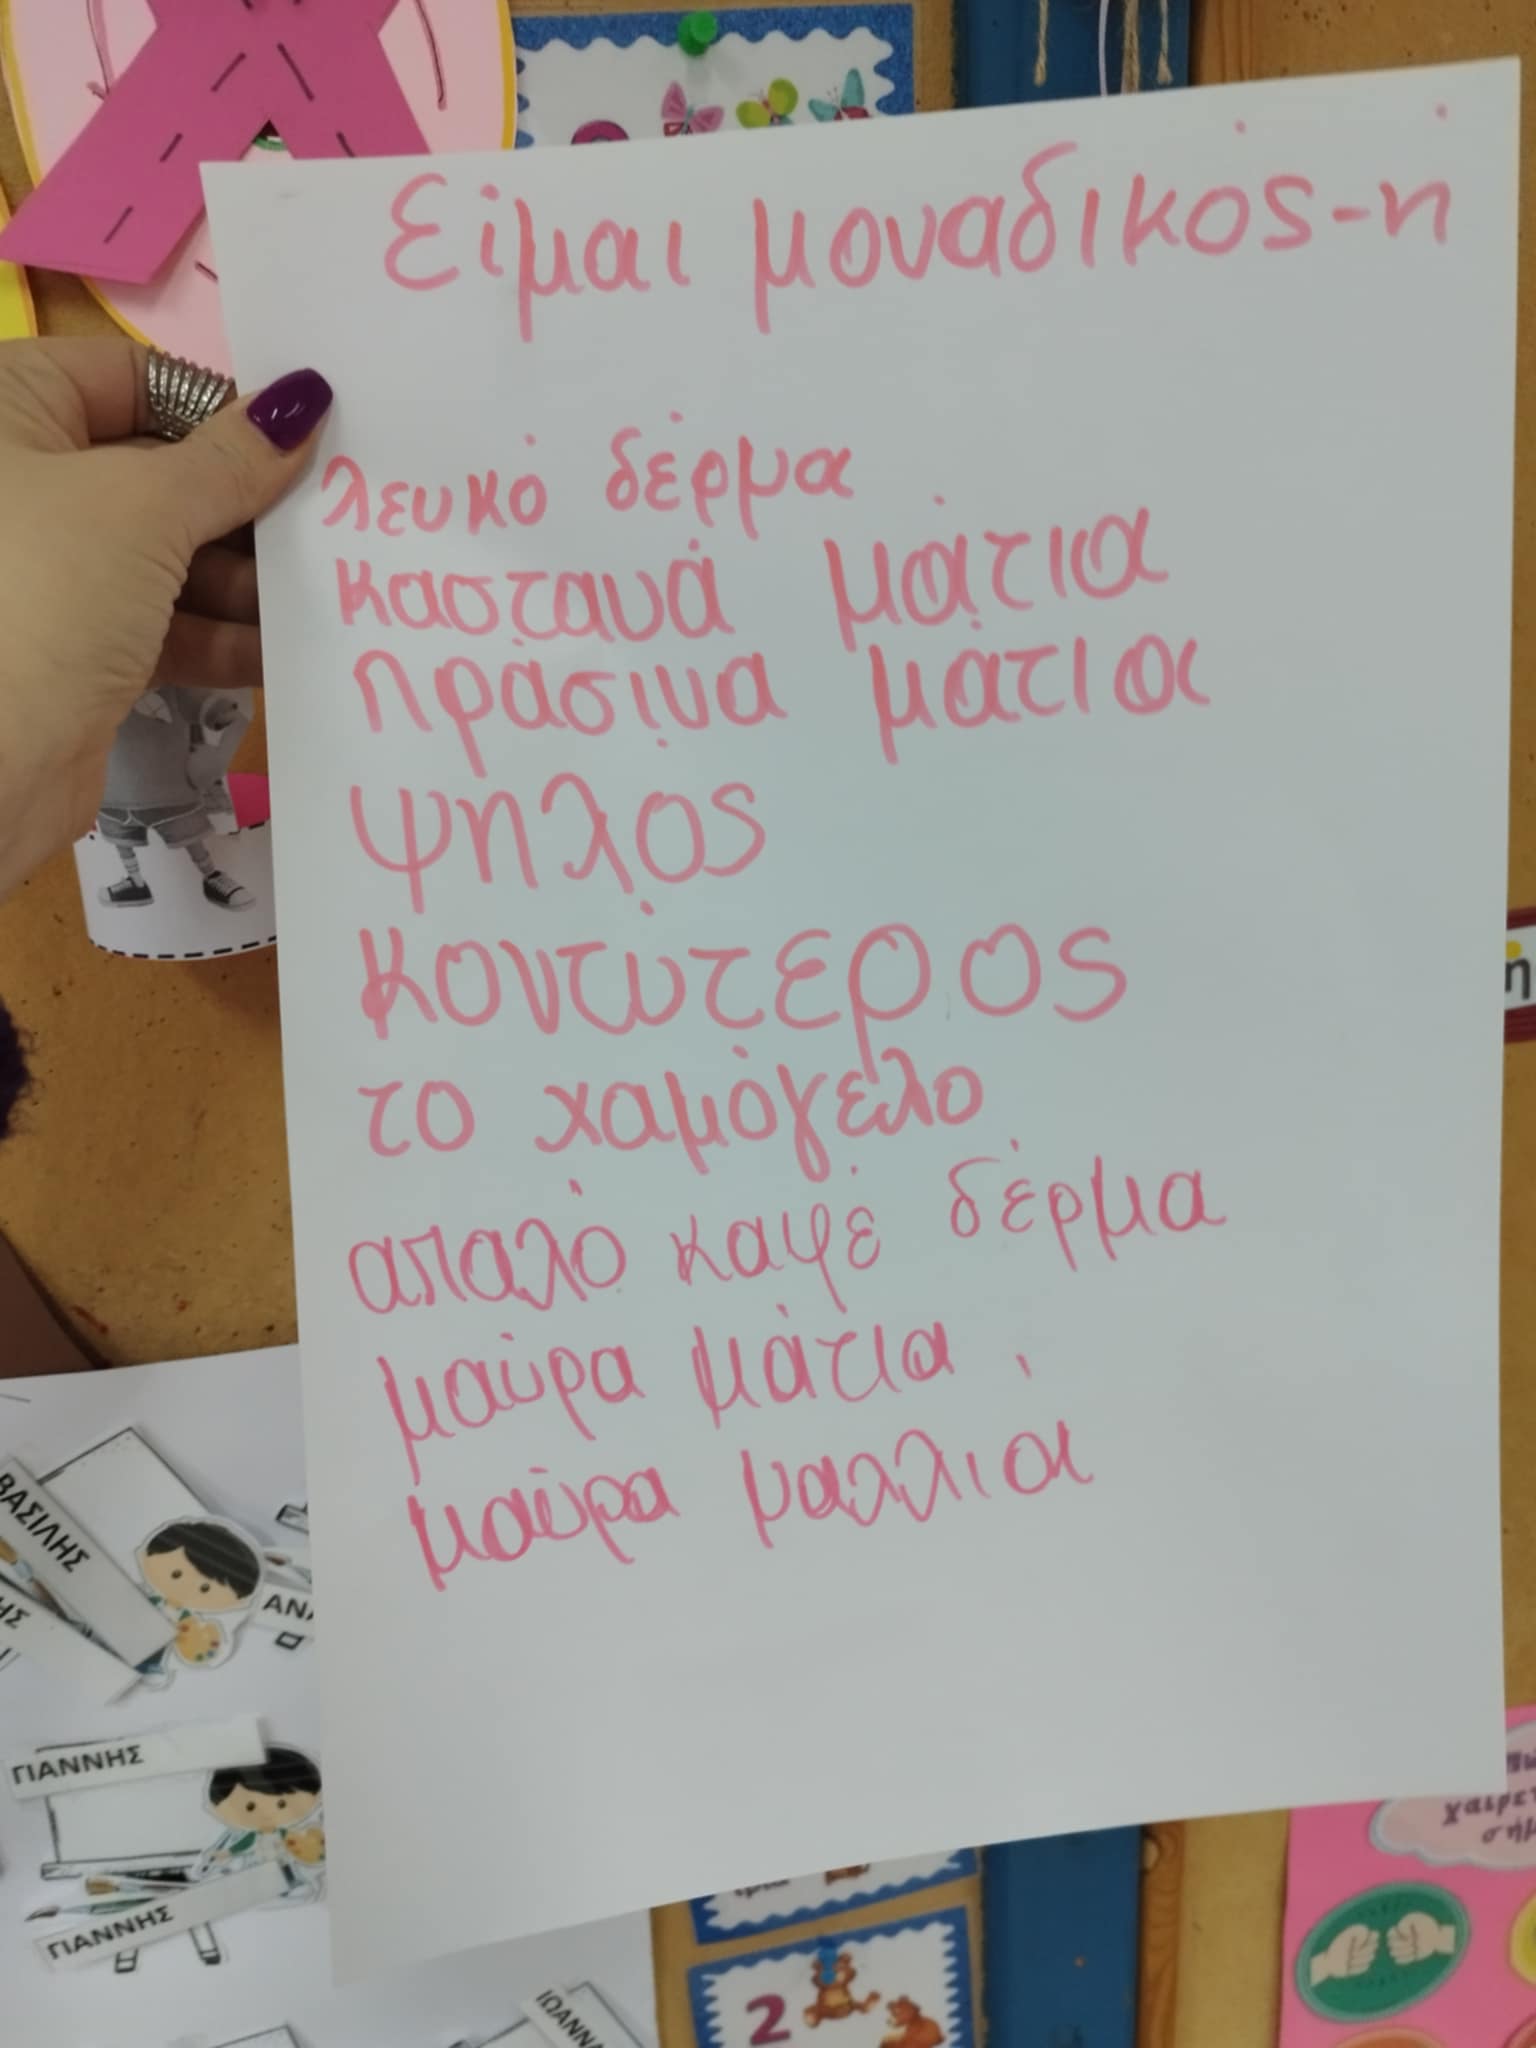 Είμαι μοναδικός-ή
λευκό δέρμα
καστανά μάτια
πράσινα μάτια
ψηλός
κοντύτερος
το χαμόγελο
απαλό καφέ δέρμα
μαύρα μάτια
μαύρα μαλλιά
ΒΑΣΙΛΗΣ
ΓΙΑΝΝΗΣ
ΓΙΑΝΝΗΣ
2